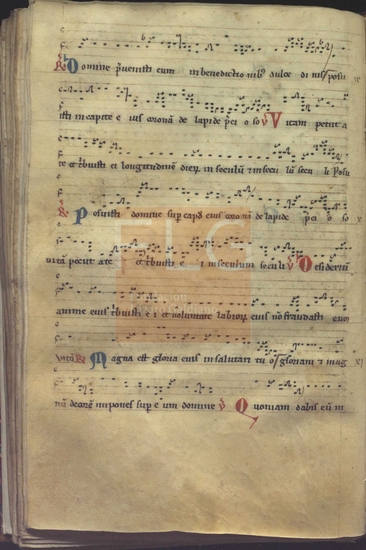 R Domine p̄uenisti eum in benedictio nib; dulce di nis posu
isti in capite e ius coronā de lapide p̄ci o so V Vitam petiit a
te et t̄buisti ei longitudinē dieɽ in seculū ⁊ in secu lū secu li Posu
R Posuisti domine sup cap̄d eius coronā de lapide p̄ci o so
V Vitā peciit a te et t̄buisti e i in seculum seculi V Desideriū
anime eius t̄buisti e i et voluntate labioɽ eius nō fraudasti eum
Vitā R Magna est gloria eius in salutari tu o gloriam ⁊ mag
nū decorē inpones sup e um domine V Quoniam dabis eū in
FLG